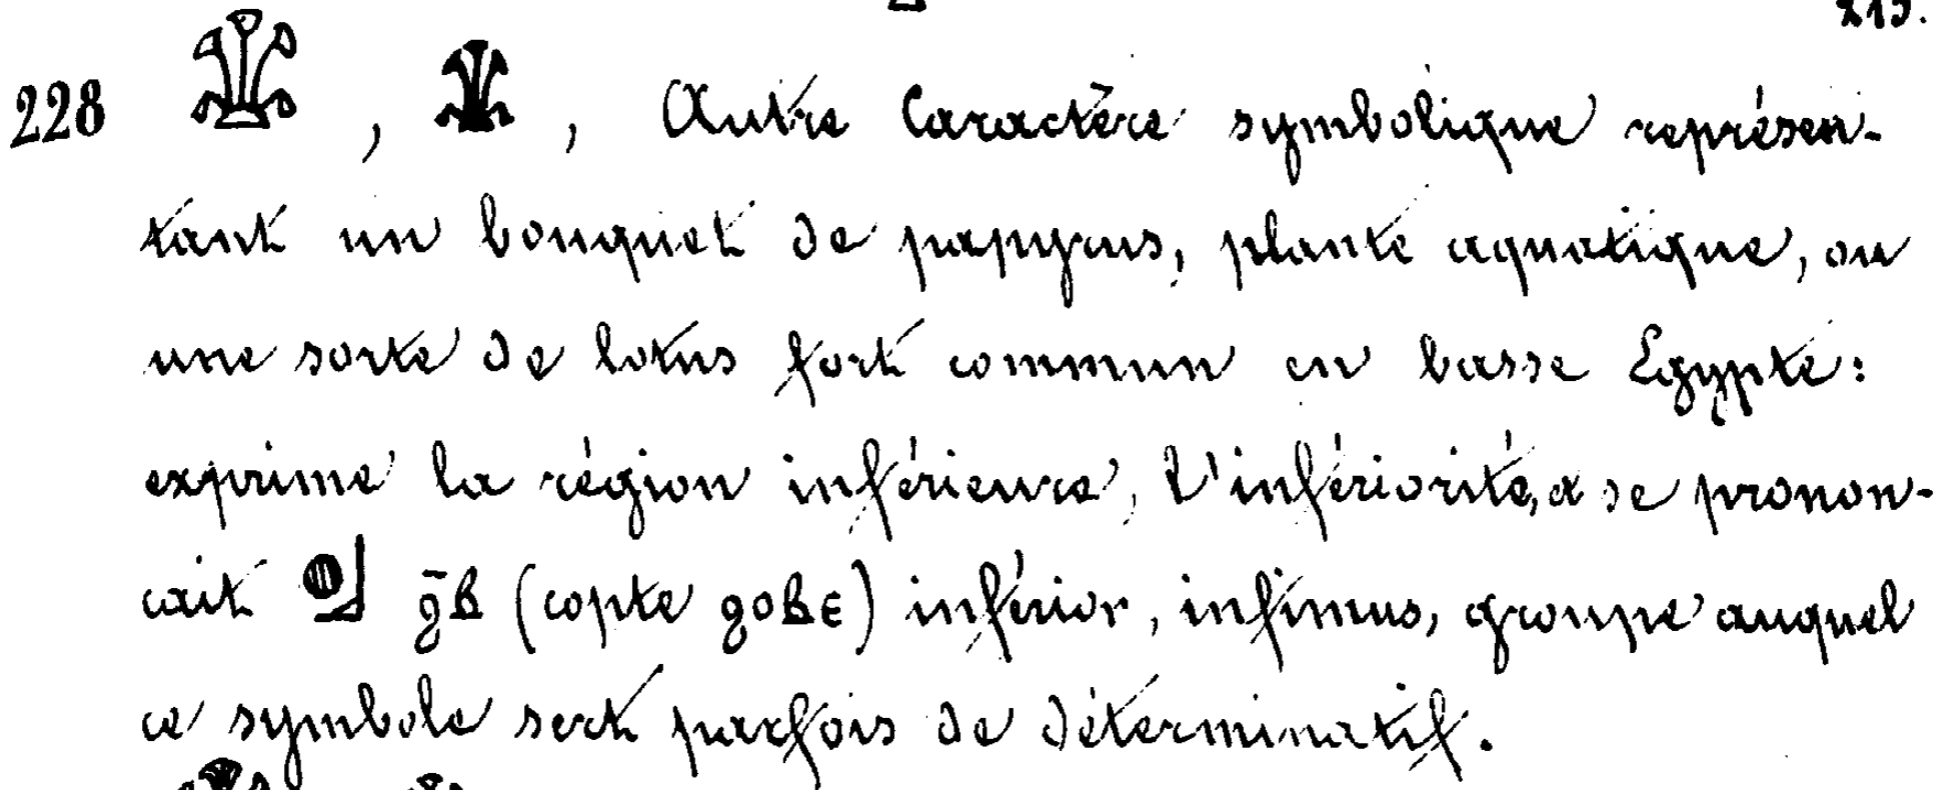 213.
228 , , Autre Caractère symbolique représen-
tant un bouquet de papyrus, plante aquatique, ou
une sorte de lotus fort commun en basse Egypte:
exprime la région inférieure, l'infériorité, & se pronon-
cait 𓐍𓃀 ϩ̄ⲃ (copte ϩⲟⲃⲉ) inférior, infimus, groupe auquel
ce symbole sert parfois de déterminatif.